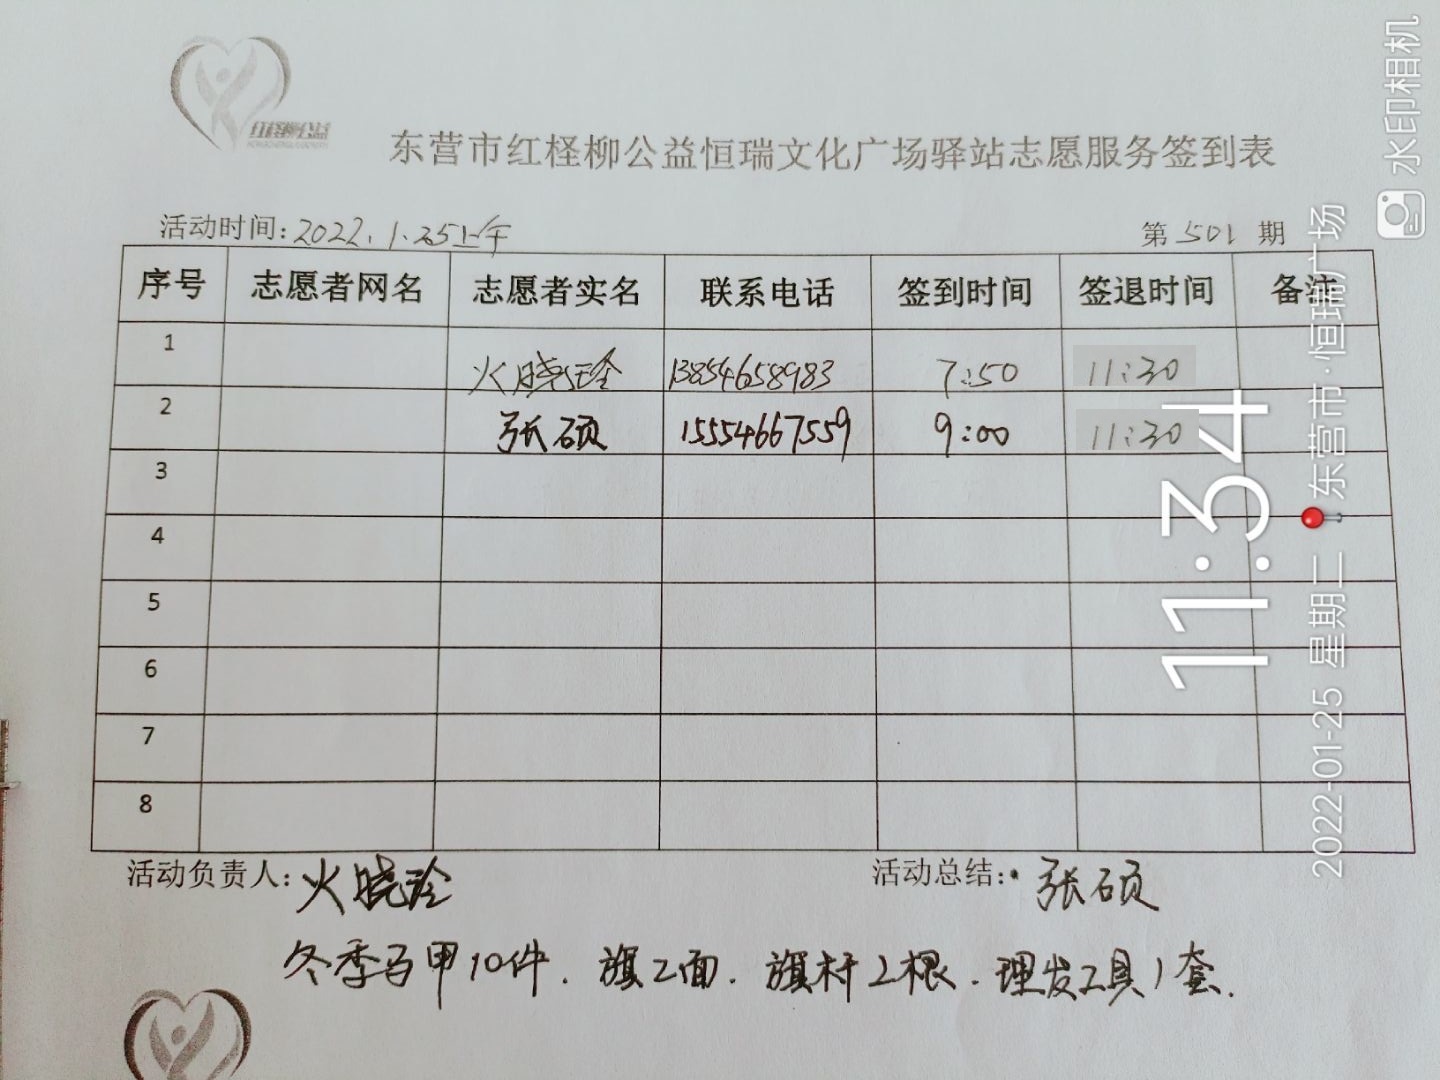 红柽柳公益
东营市红柽柳公益恒瑞文化广场驿站志愿服务签到表
活动时间:2022.1.25上午 第501期
序号 志愿者网名 志愿者实名 联系电话 签到时间 签退时间 备注
1 火晓玲 13854658983 7:50 11:30
2 张硕 15554667559 9:00 11:30
3
4
5
6
7
8
活动负责人:火晓玲 活动总结:张硕
冬季马甲10件.旗2面.旗杆2根.理发工具1套.
11:34
2022-01-25 星期二 东营市·恒瑞广场
水印相机